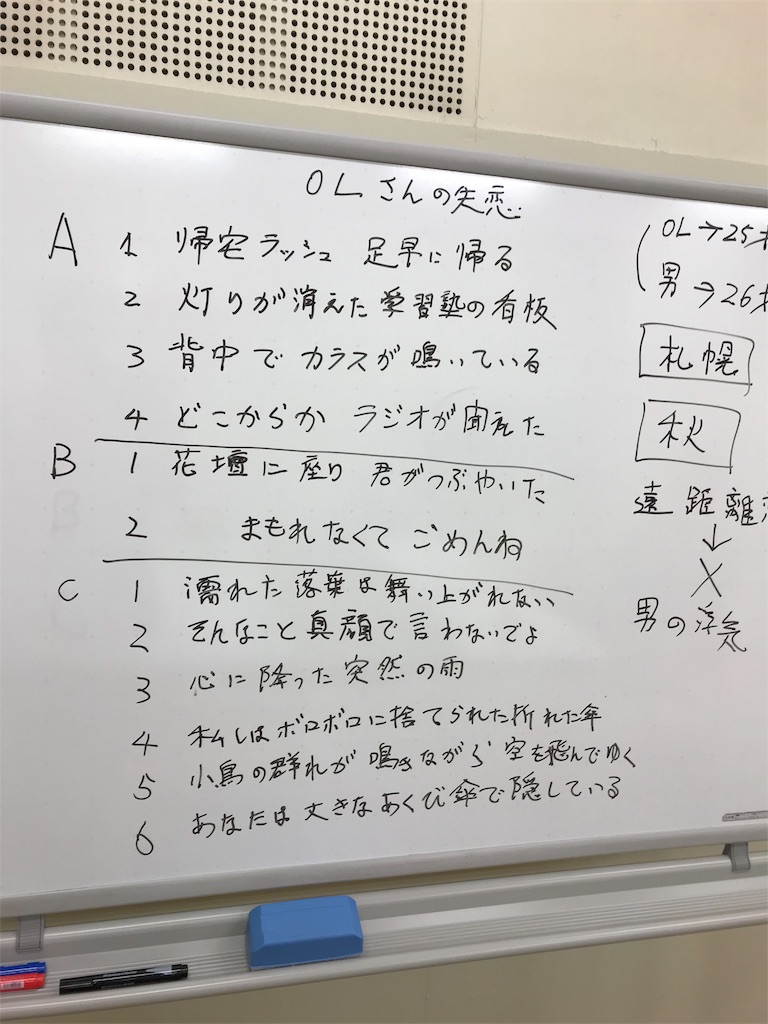 OLさんの失恋
A 1 帰宅ラッシュ 足早に帰る
2 灯りが消えた学習塾の看板
3 背中でカラスが鳴いている
4 どこからか ラジオが聞えた
B 1 花壇に座り 君がつぶやいた
2 まもれなくて ごめんね
C 1 濡れた落葉は舞い上がれない
2 そんなこと真顔で言わないでよ
3 心に降った突然の雨
4 私しはボロボロに捨てられた折れた傘
5 小鳥の群れが鳴きながら空を飛んでゆく
6 あなたは大きなあくび傘で隠している
OL→25才
男→26才
札幌
秋
遠距離
↓
X
男の浮気